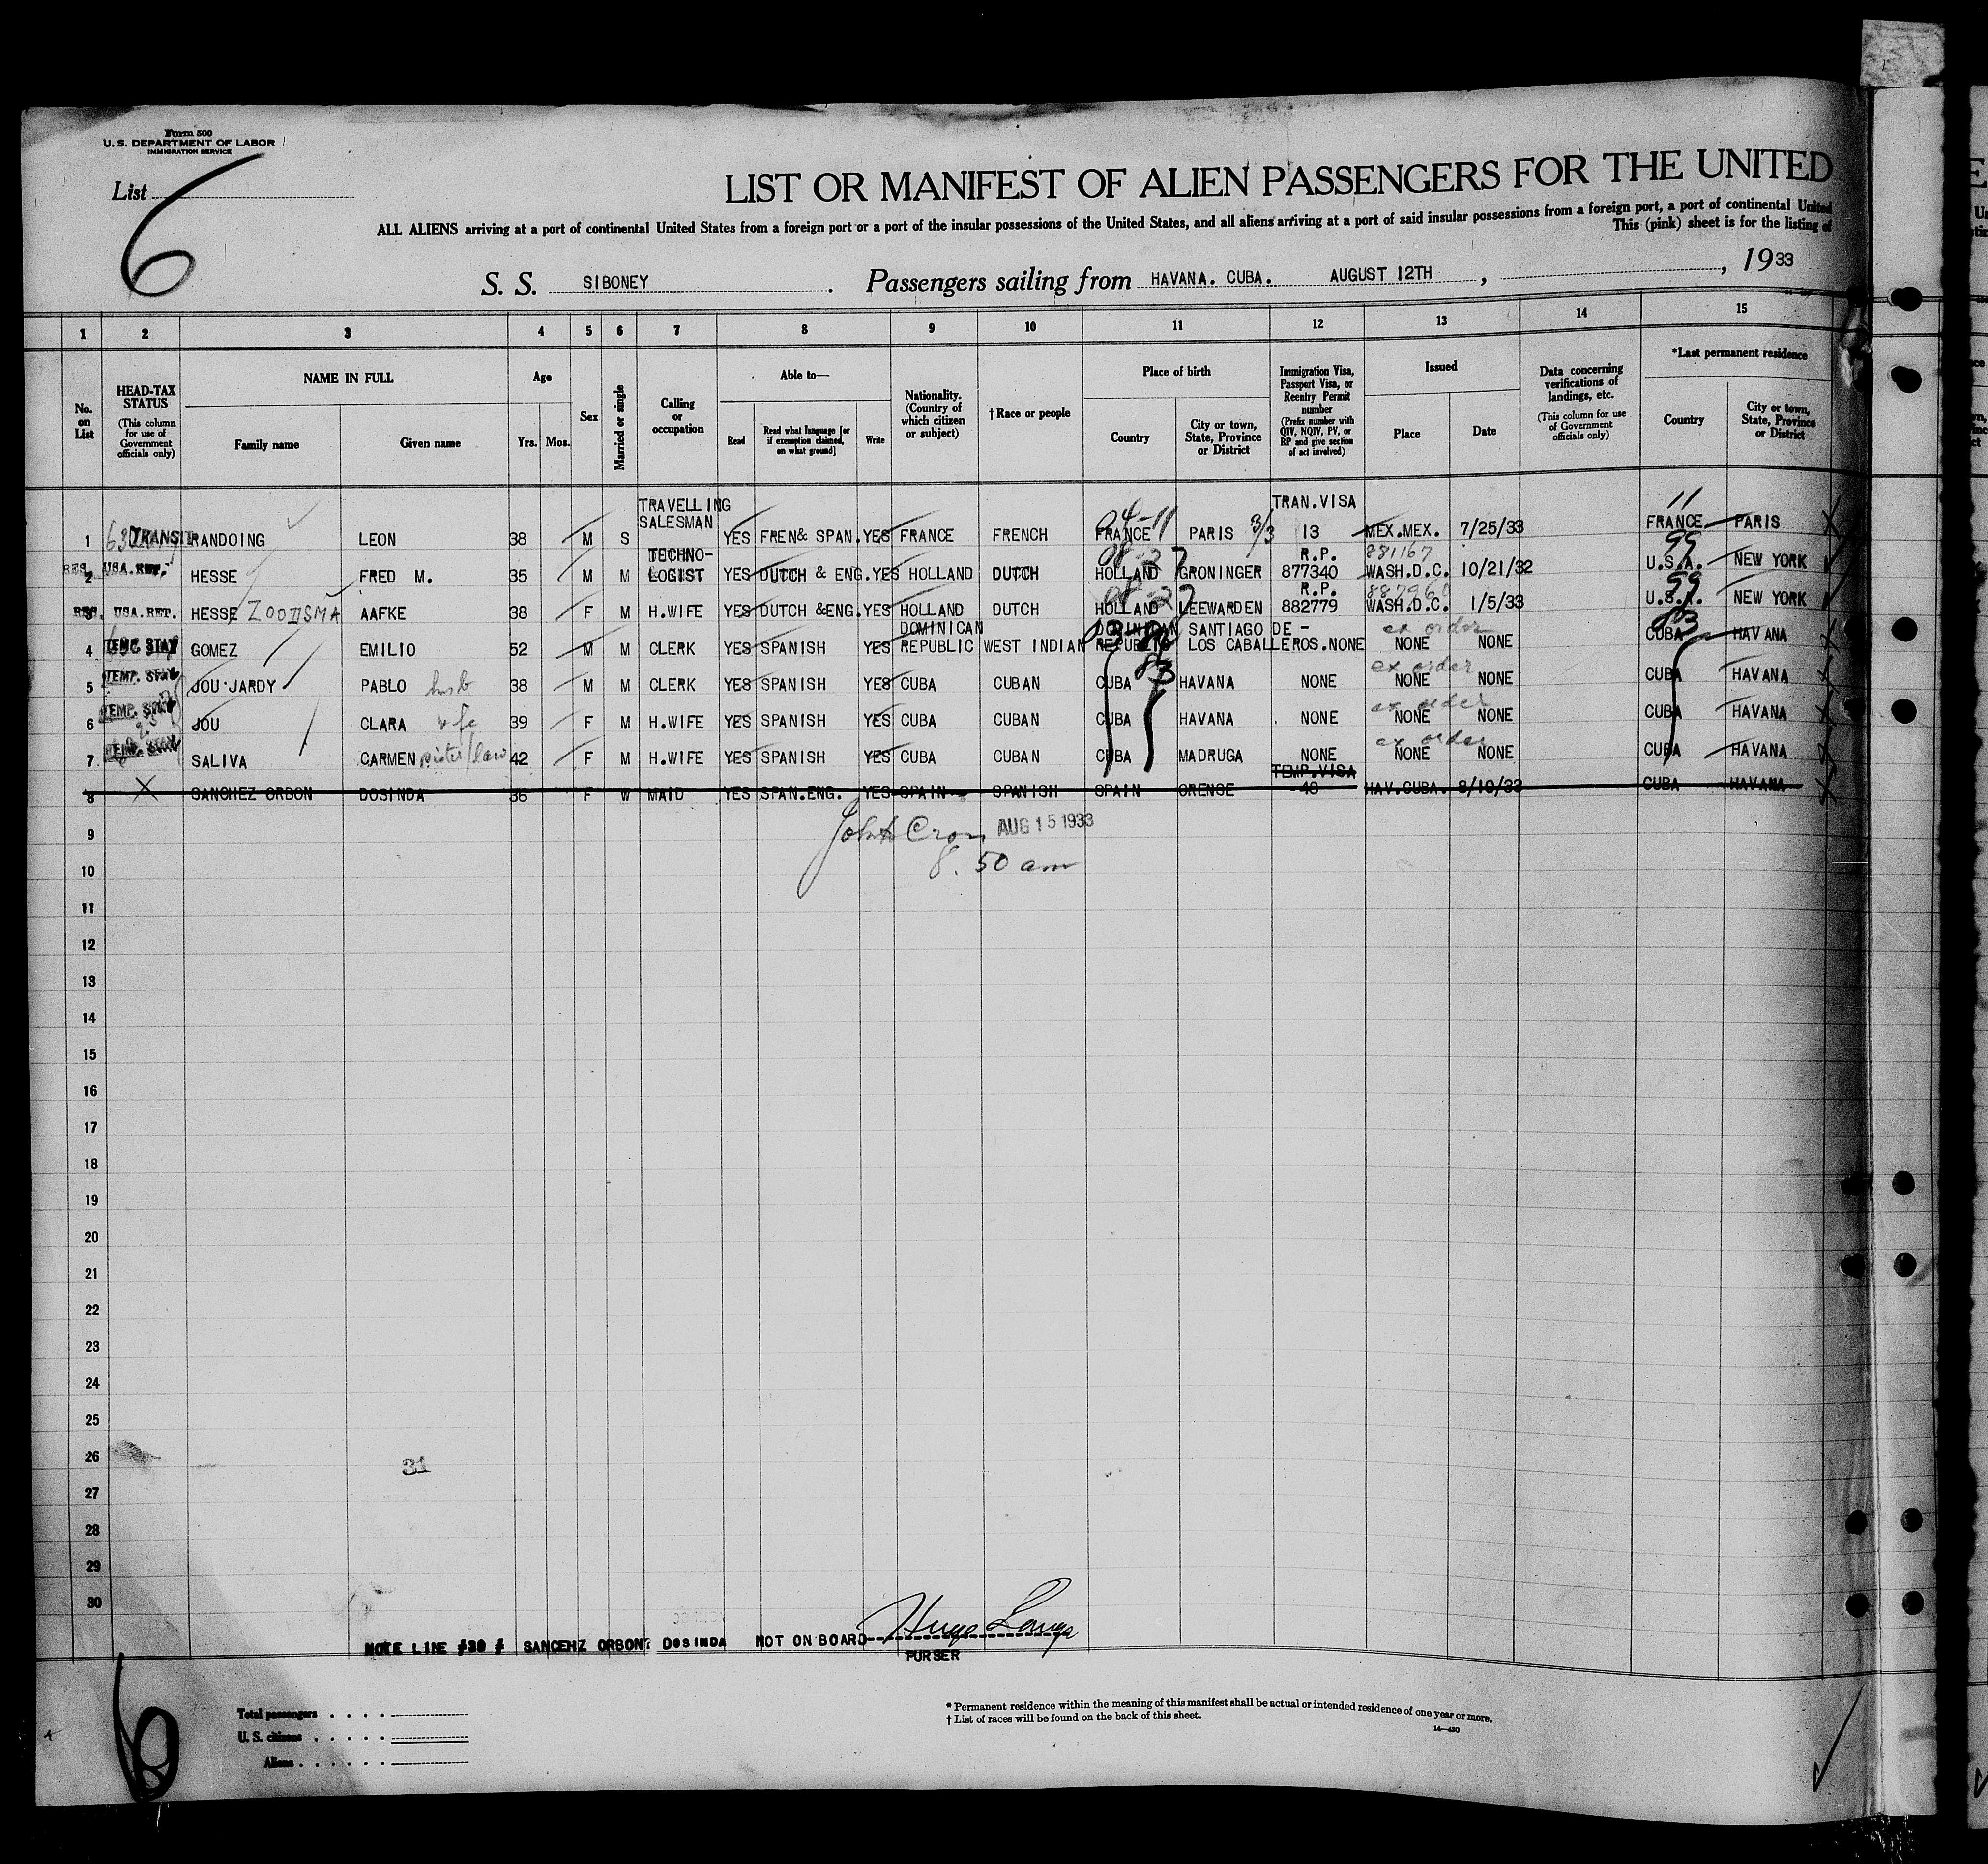 Form 500
U. S. DEPARTMENT OF LABOR
IMMIGRATION SERVICE
List 6
LIST OR MANIFEST OF ALIEN PASSENGERS FOR THE UNITED
ALL ALIENS arriving at a port of continental United States from a foreign port or a port of the insular possessions of the United States, and all aliens arriving at a port of said insular possessions from a foreign port, a port of continental United
This (pink) sheet is for the listing of
S. S. SIBONEY. Passengers sailing from HAVANA. CUBA. AUGUST 12TH, , 1933
1 2 3 4 5 6 7 8 9 10 11 12 13 14 15
No. on List
HEAD-TAX STATUS
(This column for use of Government officials only)
NAME IN FULL
Family name Given name
Age
Yrs. Mos.
Sex
Married or single
Calling or occupation
Able to—
Read Read what language [or if exemption claimed, on what ground] Write
Nationality. (Country of which citizen or subject)
†Race or people
Place of birth
Country City or town, State, Province or District
Immigration Visa, Passport Visa, or Reentry Permit number
(Prefix number with QIV, NQIV, PV, or RP and give section of act involved)
Issued
Place Date
Data concerning verifications of landings, etc.
(This column for use of Government officials only)
*Last permanent residence
Country City or town, State, Province or District
1 TRANSIT RANDOING LEON 38 M S TRAVELLING SALESMAN YES FREN& SPAN. YES FRANCE FRENCH 04-11 FRANCE PARIS 3/3 TRAN.VISA 13 MEX.MEX. 7/25/33 11 FRANCE PARIS
2 RES. USA.RET. HESSE FRED M. 35 M M TECHNO-LOGIST YES DUTCH & ENG. YES HOLLAND DUTCH HOLLAND GRONINGER R.P. 877340 881167 WASH.D.C. 10/21/32 99 U.S.A. NEW YORK
3 RES. USA.RET. HESSE ZOODSMA AAFKE 38 F M H.WIFE YES DUTCH &ENG. YES HOLLAND DUTCH HOLLAND LEEWARDEN R.P. 882779 WASH.D.C. 1/5/33 99 U.S.A. NEW YORK
4 TEMP. STAY GOMEZ EMILIO 52 M M CLERK YES SPANISH YES DOMINICAN REPUBLIC WEST INDIAN DOMINICAN REPUBLIC SANTIAGO DE - LOS CABALLEROS. NONE ex order NONE NONE 83 CUBA HAVANA
5 TEMP. STAY JOU JARDY PABLO husb 38 M M CLERK YES SPANISH YES CUBA CUBAN CUBA 83 HAVANA NONE ex order NONE NONE CUBA HAVANA
6 TEMP. STAY JOU CLARA wife 39 F M H.WIFE YES SPANISH YES CUBA CUBAN CUBA HAVANA NONE ex order NONE NONE CUBA HAVANA
7 TEMP. STAY SALIVA CARMEN sister/law 42 F M H.WIFE YES SPANISH YES CUBA CUBAN CUBA MADRUGA NONE ex order NONE NONE CUBA HAVANA
8 X SANCHEZ ORBON DOSINDA 36 F W MAID YES SPAN.ENG. YES SPAIN SPANISH SPAIN ORENSE TEMP.VISA 48 HAV.CUBA. 8/10/33 CUBA HAVANA
9 John Cron AUG 15 1933
10 8.50 am
11
12
13
14
15
16
17
18
19
20
21
22
23
24
25
26
31
27
28
29
30
NOTE LINE #30 # SANCEHZ ORBON? DOSINDA NOT ON BOARD Hugo Lange
PURSER
6
Total passengers
U. S. citizens
Aliens
* Permanent residence within the meaning of this manifest shall be actual or intended residence of one year or more.
† List of races will be found on the back of this sheet.
14—430